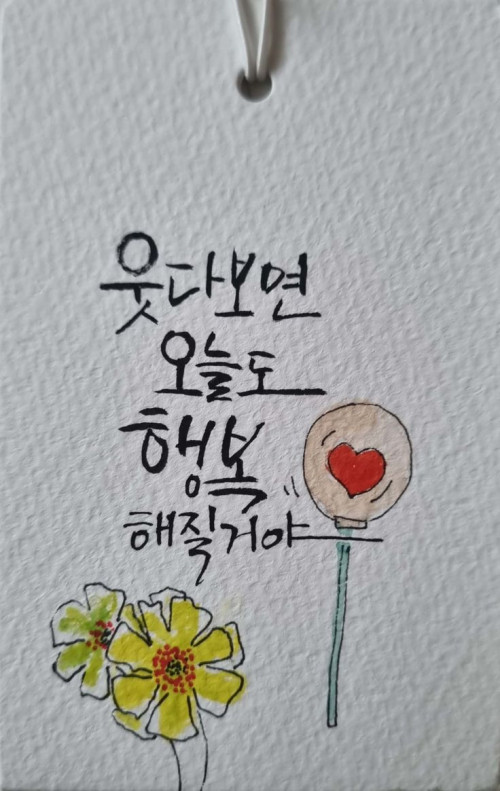 웃다보면
오늘도
행복
해질거야